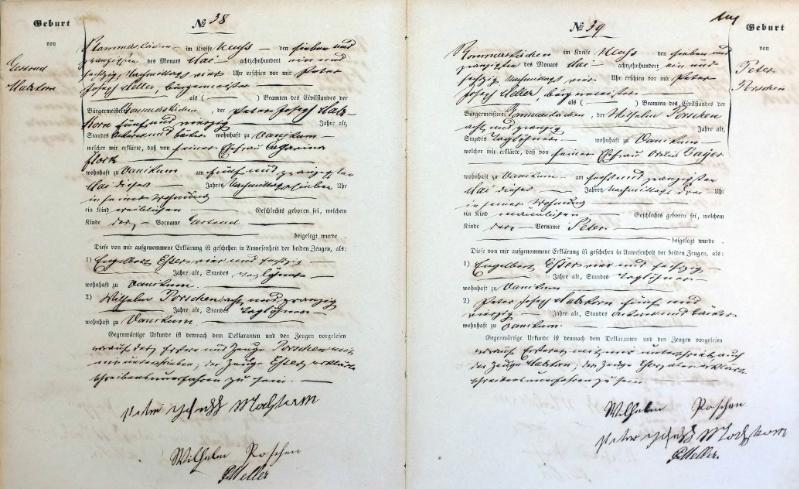 Geburt
von
Gertrud
№ 38
Rommerskirchen im Kreise Neuss den sieben und
zwanzigsten des Monats Mai achtzehnhundert ein und
sechzig, Nachmittags vier Uhr erschien vor mir Peter
Josef Meller, Bürgermeister
als ( ) Beamten des Civilstandes der
Bürgermeisterei Rommerskirchen, der Peter Josef
fünf und vierzig Jahre alt,
Standes wohnhaft zu Vanikum
welcher mir erklärte, daß von seiner Ehefrau Catharina
wohnhaft zu Vanikum am fünf und zwanzigsten
Mai dieses Jahres, Nachmittags sieben Uhr
in seiner Wohnung
ein Kind weiblichen Geschlechts geboren sei, welchem
Kinde der Vorname Gertrud
beigelegt wurde
Diese von mir aufgenommene Erklärung ist geschehen in Anwesenheit der beiden Zeugen, als:
1) Engelbert vier und sechzig
Jahre alt, Standes Taglöhner
wohnhaft zu Vanikum
2) Wilhelm Porschen, acht und zwanzig
Jahre alt, Standes Taglöhner
wohnhaft zu Vanikum
Gegenwärtige Urkunde ist demnach dem Deklaranten und den Zeugen vorgelesen
worauf der Erstere und Zeuge Porschen mit
mir unterschrieben, der Zeuge erklärte
schreibensunerfahren zu sein.
Wilhelm Poschen
Meller
№ 39
Geburt
von
Peter
Porschen
Rommerskirchen im Kreise Neuss den sieben und
zwanzigsten des Monats Mai achtzehnhundert ein und
sechzig, Nachmittags vier Uhr erschien vor mir Peter
Josef Meller Bürgermeister
als ( ) Beamten des Civilstandes der
Bürgermeisterei Rommerskirchen, der Wilhelm Porschen
acht und zwanzig Jahre alt,
Standes Taglöhner wohnhaft zu Vanikum
welcher mir erklärte, daß von seiner Ehefrau
wohnhaft zu Vanikum am sechs und zwanzigsten
Mai dieses Jahres, Nachmittags drei Uhr
in seiner Wohnung
ein Kind männlichen Geschlechts geboren sei, welchem
Kinde der Vorname Peter
beigelegt wurde
Diese von mir aufgenommene Erklärung ist geschehen in Anwesenheit der beiden Zeugen, als:
1) Engelbert vier und sechzig
Jahre alt, Standes Taglöhner
wohnhaft zu Vanikum
2) Peter Josef fünf und
vierzig Jahre alt, Standes
wohnhaft zu Vanikum
Gegenwärtige Urkunde ist demnach dem Deklaranten und den Zeugen vorgelesen
worauf Ersterer mit mir unterschrieb auch
der Zeuge der Zeuge erklärte
schreibensunerfahren zu sein.
Wilhelm Poschen
Meller